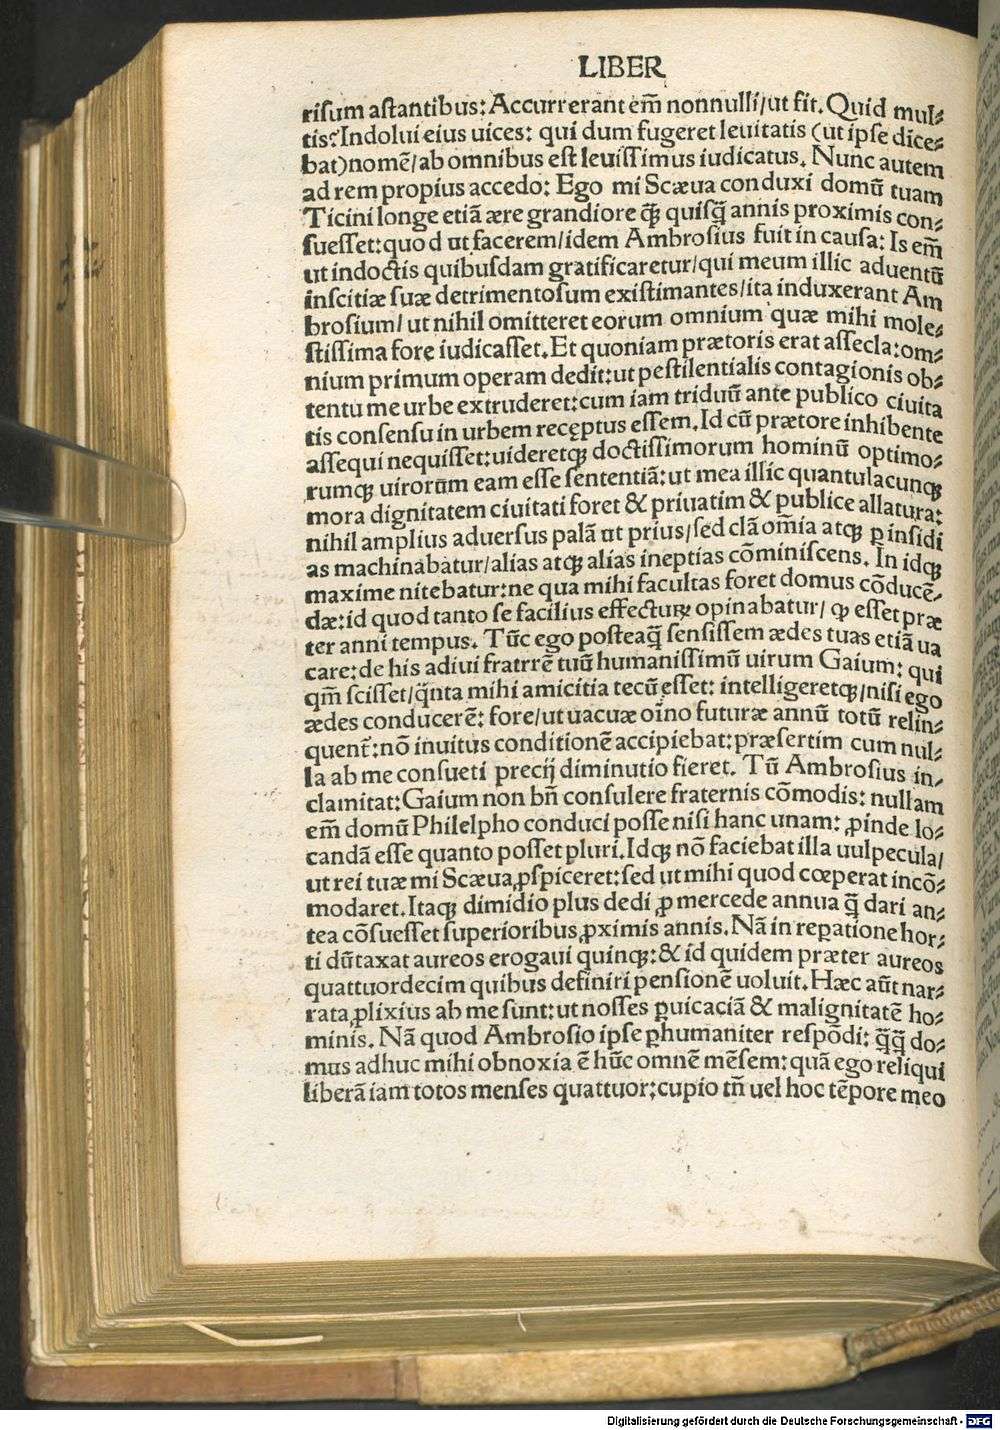 LIBER
risum astantibus: Accurrerant em̄ nonnulli/ut fit. Quid mul⸗
tis? Indolui eius uices: qui dum fugeret leuitatis (ut ipse dice⸗
bat) nomē/ab omnibus est leuissimus iudicatus. Nunc autem
ad rem propius accedo: Ego mi Scæua conduxi domū tuam
Ticini longe etiā ære grandiore ꝙ̄ quisq̄ annis proximis con⸗
sueſſet: quod ut facerem/idem Ambrosius fuit in causa: Is em̄
ut indoctis quibusdam gratificaretur/qui meum illic aduentū
inscitiæ suæ detrimentosum existimantes/ita induxerant Am
brosium/ut nihil omitteret eorum omnium quæ mihi mole⸗
stissima fore iudicasset. Et quoniam prætoris erat assecla: om⸗
nium primum operam dedit: ut pestilentialis contagionis ob⸗
tentu me urbe extruderet: cum iam triduū ante publico ciuita
tis consensu in urbem receptus essem. Id cū prætore inhibente
assequi nequisset: uideretqꝫ doctissimorum hominū optimo⸗
rumqꝫ uirorum eam esse sententiā: ut mea illic quantulacunqꝫ
mora dignitatem ciuitati foret & priuatim & publice allatura:
nihil amplius aduersus palā ut prius/sed clā om̄ia atqꝫ ꝑ insidi
as machinabatur/alias atqꝫ alias ineptias cōminiscens. In idqꝫ
maxime nitebatur: ne qua mihi facultas foret domus cōducē⸗
dæ: id quod tanto se facilius effecturꝫ opinabatur/ ꝙ esset præ
ter anni tempus. Tūc ego posteaq̄ sensissem ædes tuas etiā ua
care: de his adiui fratrrē tuū humanissimū uirum Gaium: qui
qm̄ scisset/q̄nta mihi amicitia tecū esset: intelligeretqꝫ/nisi ego
ædes conducerē: fore/ut uacuæ oīno futuræ annū totū relin⸗
quent᷑: nō inuitus conditionē accipiebat: præsertim cum nul⸗
la ab me consueti precij diminutio fieret. Tū Ambrosius in⸗
clamitat: Gaium non bn̄ consulere fraternis cōmodis: nullam
em̄ domū Philelpho conduci posse nisi hanc unam: ꝓinde lo⸗
candā esse quanto posset pluri. Idqꝫ nō faciebat illa uulpecula/
ut rei tuæ mi Scæua ꝓspiceret: sed ut mihi quod cœperat incō⸗
modaret. Itaqꝫ dimidio plus dedi ꝓ mercede annua q̄ dari an⸗
tea cōsuesset superioribus ꝓximis annis. Nā in reꝑatione hor⸗
ti dūtaxat aureos erogaui quinqꝫ: & id quidem præter aureos
quattuordecim quibus definiri pensionē uoluit. Hæc aūt nar⸗
rata ꝓlixius ab me sunt: ut nosses ꝑuicaciā & malignitatē ho⸗
minis. Nā quod Ambrosio ipse ꝑhumaniter respōdi: q̄q̄ do⸗
mus adhuc mihi obnoxia ē hūc omnē mēsem: quā ego reliqui
liberā iam totos menses quattuor: cupio tn̄ uel hoc tēpore meo
Digitalisierung gefördert durch die Deutsche Forschungsgemeinschaft - DFG